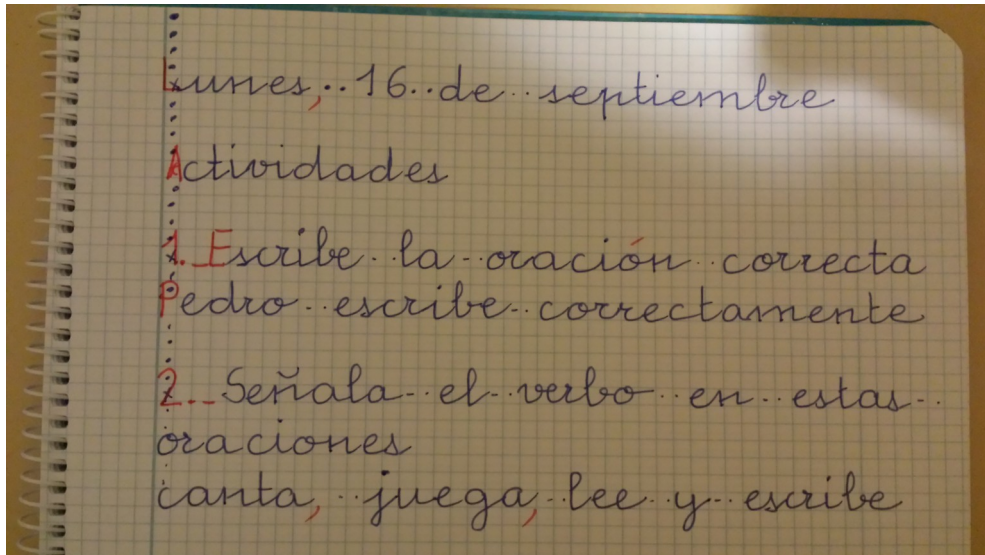 Lunes, 16 de septiembre
Actividades
1. Escribe la oración correcta
Pedro escribe correctamente
2. Señala el verbo en estas
oraciones
canta, juega, lee y escribe